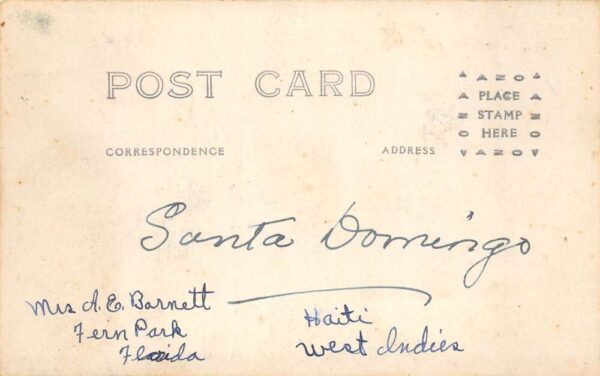 POST CARD
AZO
PLACE
STAMP
HERE
AZO
CORRESPONDENCE
ADDRESS
Santa Domingo
Mrs A. E. Barnett
Fern Park
Florida
Haiti
West Indies